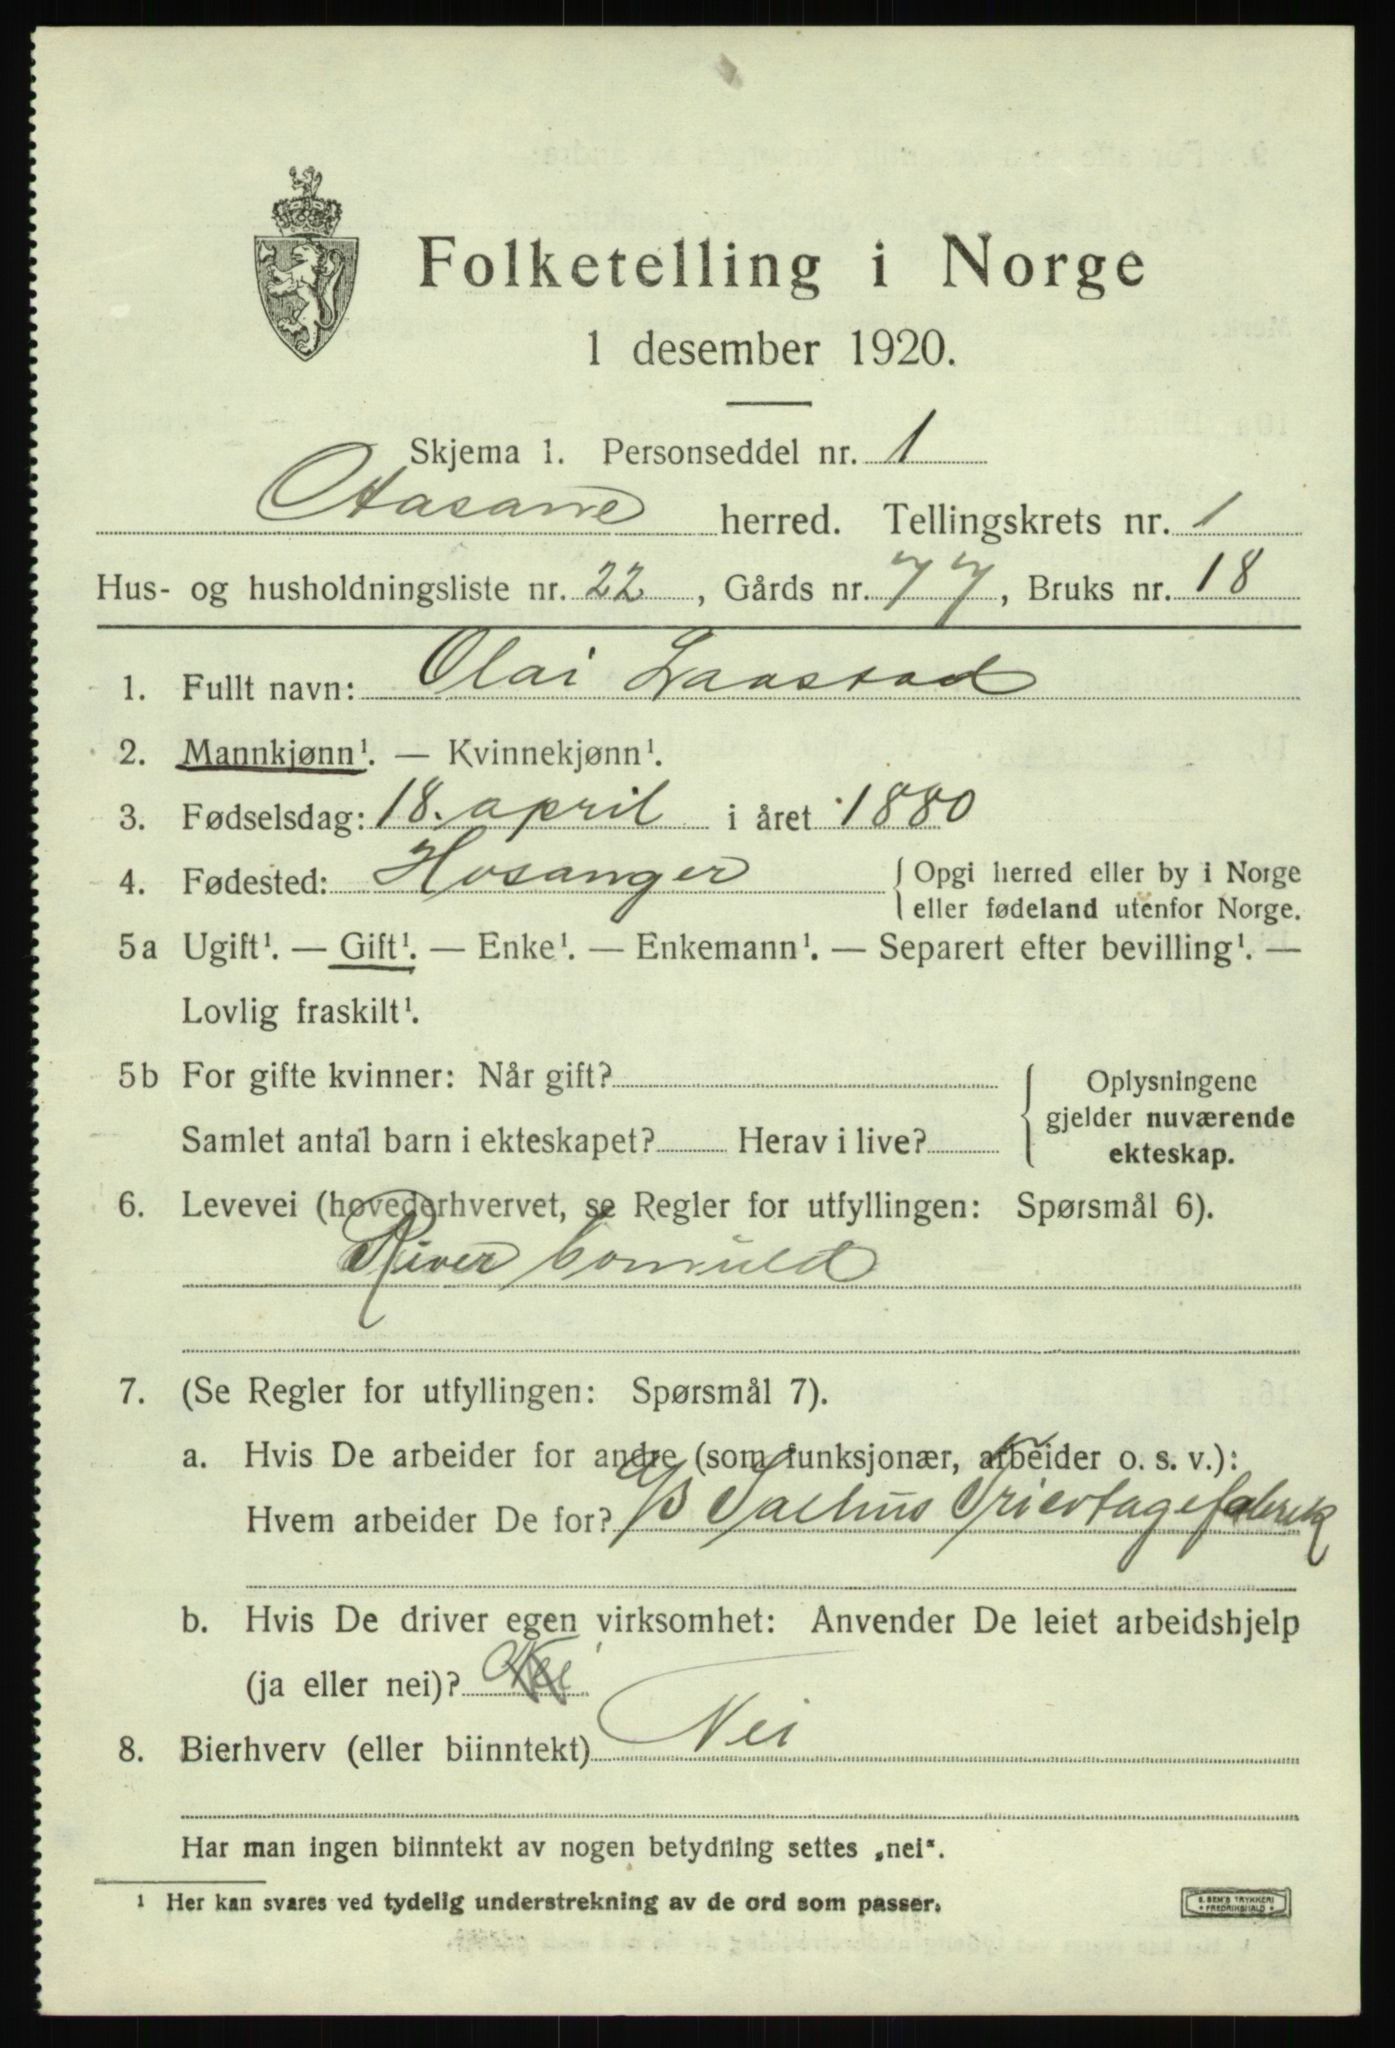 Folketelling i Norge
1 desember 1920.
Skjema 1. Personseddel nr. 1
Aasane herred. Tellingskrets nr. 1
Hus- og husholdningsliste nr. 22, Gårds nr. 77, Bruks nr. 18
1. Fullt navn: Olai Laastad
2. Mannkjønn¹. — Kvinnekjønn¹.
3. Fødselsdag: 18. april i året 1880
4. Fødested: Hosanger
Opgi herred eller by i Norge
eller fødeland utenfor Norge.
5a Ugift¹. — Gift¹. — Enke¹. — Enkemann¹. — Separert efter bevilling¹. —
Lovlig fraskilt¹.
5b For gifte kvinner: Når gift?
Samlet antal barn i ekteskapet? Herav i live?
Oplysningene
gjelder nuværende
ekteskap.
6. Levevei (hovederhvervet, se Regler for utfyllingen: Spørsmål 6).
River
7. (Se Regler for utfyllingen: Spørsmål 7).
a. Hvis De arbeider for andre (som funksjonær, arbeider o. s. v.):
Hvem arbeider De for? Salhus Tricotagefabrik
b. Hvis De driver egen virksomhet: Anvender De leiet arbeidshjelp
(ja eller nei)? Nei
8. Bierhverv (eller biinntekt) Nei
Har man ingen biinntekt av nogen betydning settes „nei“.
¹ Her kan svares ved tydelig understrekning av de ord som passer.
S. SEM'S TRYKKERI
FREDRIKSHALD